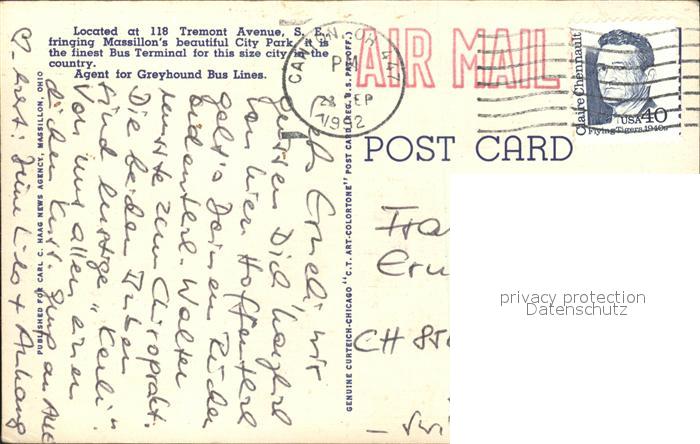 Located at 118 Tremont Avenue, S. E.,
fringing Massillon's beautiful City Park, it is
the finest Bus Terminal for this size city in the
country.
Agent for Greyhound Bus Lines.
PUBLISHED FOR CARL C. HAAG NEWS AGENCY, MASSILLON, OHIO
GENUINE CURTEICH-CHICAGO "C.T. ART-COLORTONE" POST CARD (REG. U.S. PAT. OFF.)
CANTON, OH 447
PM
28 SEP
1992
AIR MAIL
Claire Chennault
USA 40
Flying Tigers, 1940s
POST CARD
wir
grüssen Dich herzlich
von hier. Hoffentlich
geht's Deinem Rücken
ordentlich. Walter
musste zum Chiroprakt.
Die beiden Buben
sind lustige "Kerli".
Von uns allen einen
dicken Kuss. Gruss an Alle
+ Anhang
CH 85
privacy protection
Datenschutz